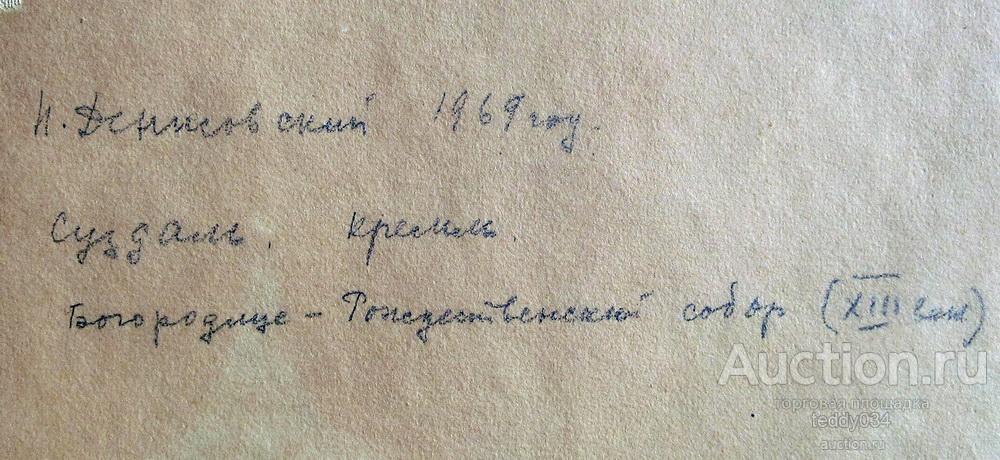 И. Денисовский 1969 году.
Суздаль. Кремль.
Богородице-Рождественский собор (XIII век)
Auction.ru
торговая площадка
teddy034
auction.ru